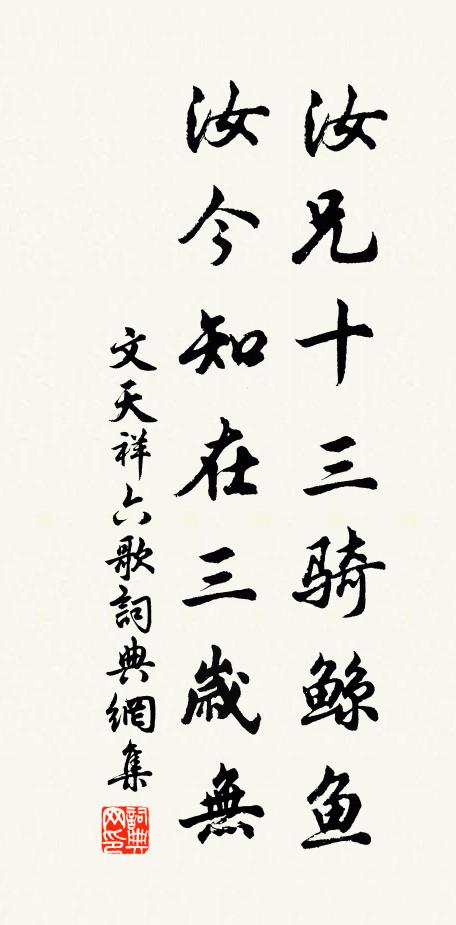 汝兄十三骑鲸鱼
汝今知在三歲無
文天祥六歌詞典網集
詞典网印